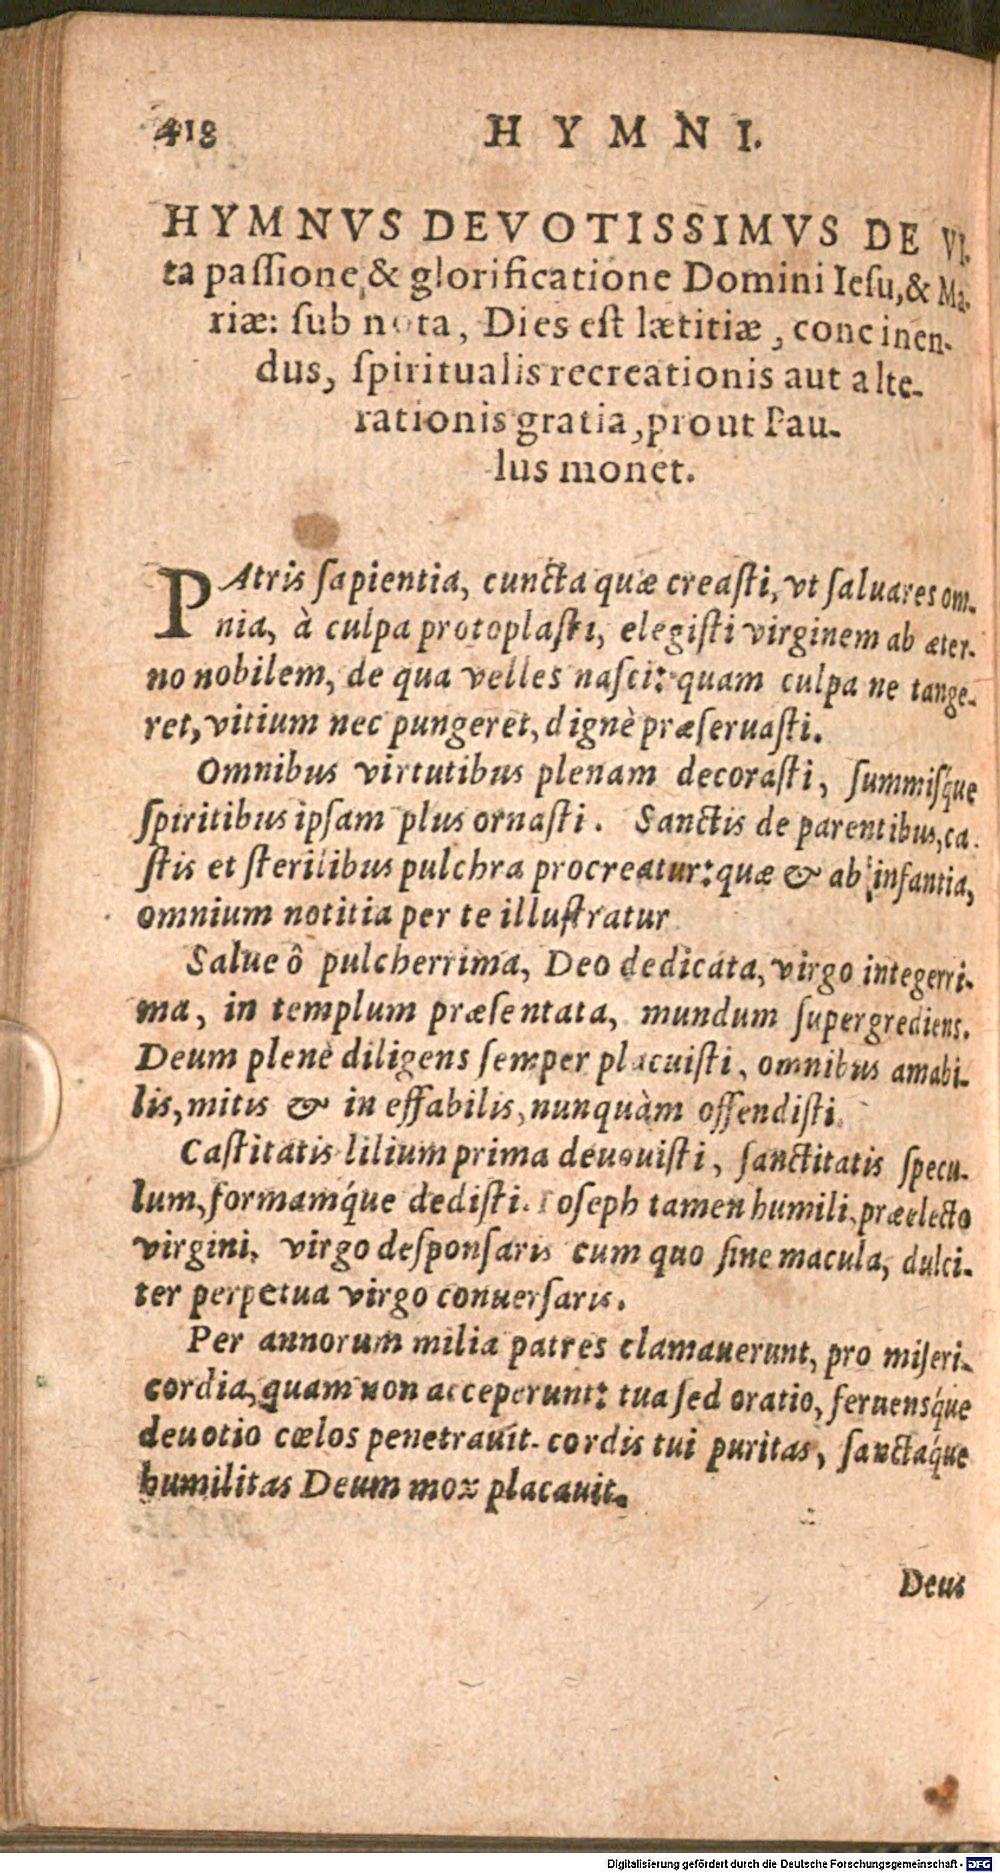 418 HYMNI.
HYMNVS DEVOTISSIMVS DE VI-
ta paſſione & glorificatione Domini Ieſu, & Ma-
riæ: ſub nota, Dies eſt lætitiæ, concinen-
dus, ſpiritualis recreationis aut alte-
rationis gratia, prout Pau-
lus monet.
PAtris ſapientia, cuncta quæ creaſti, vt ſaluares om-
nia, à culpa protoplaſti, elegiſti virginem ab æter-
no nobilem, de qua velles naſci: quam culpa ne tange-
ret, vitium nec pungeret, dignè præſeruaſti.
Omnibus virtutibus plenam decoraſti, ſummiſq́ue
ſpiritibus ipſam plus ornaſti. Sanctis de parentibus, ca-
ſtis et ſterilibus pulchra procreatur: quæ & ab infantia,
omnium notitia per te illuſtratur
Salue ô pulcherrima, Deo dedicata, virgo integerri-
ma, in templum præſentata, mundum ſupergrediens.
Deum plenè diligens ſemper placuiſti, omnibus amabi-
lis, mitis & in effabilis, nunquàm offendiſti.
Caſtitatis lilium prima deuouiſti, ſanctitatis ſpecu-
lum, formamq́ue dediſti. Ioſeph tamen humili, præelecto
virgini, virgo deſponſaris cum quo ſine macula, dulci-
ter perpetua virgo conuerſaris.
Per annorum milia patres clamauerunt, pro miſeri-
cordia, quam non acceperunt: tua ſed oratio, feruenſq́ue
deuotio cœlos penetrauit. cordis tui puritas, ſanctaq́ue
humilitas Deum mox placauit.
Deus
Digitalisierung gefördert durch die Deutsche Forschungsgemeinschaft - DFG